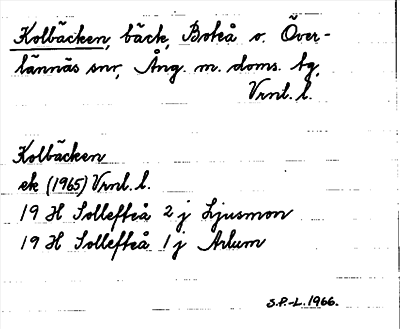 Kolbäcken, bäck, Boteå o. Över-
lännäs snr, Ång. m. doms. tg,
Vrnl. l.
Kolbäcken
ek (1965) Vrnl. l.
19 H Sollefteå 2 j Ljusmon
19 H Sollefteå 1 j Arlum
S.P.-L. 1966.